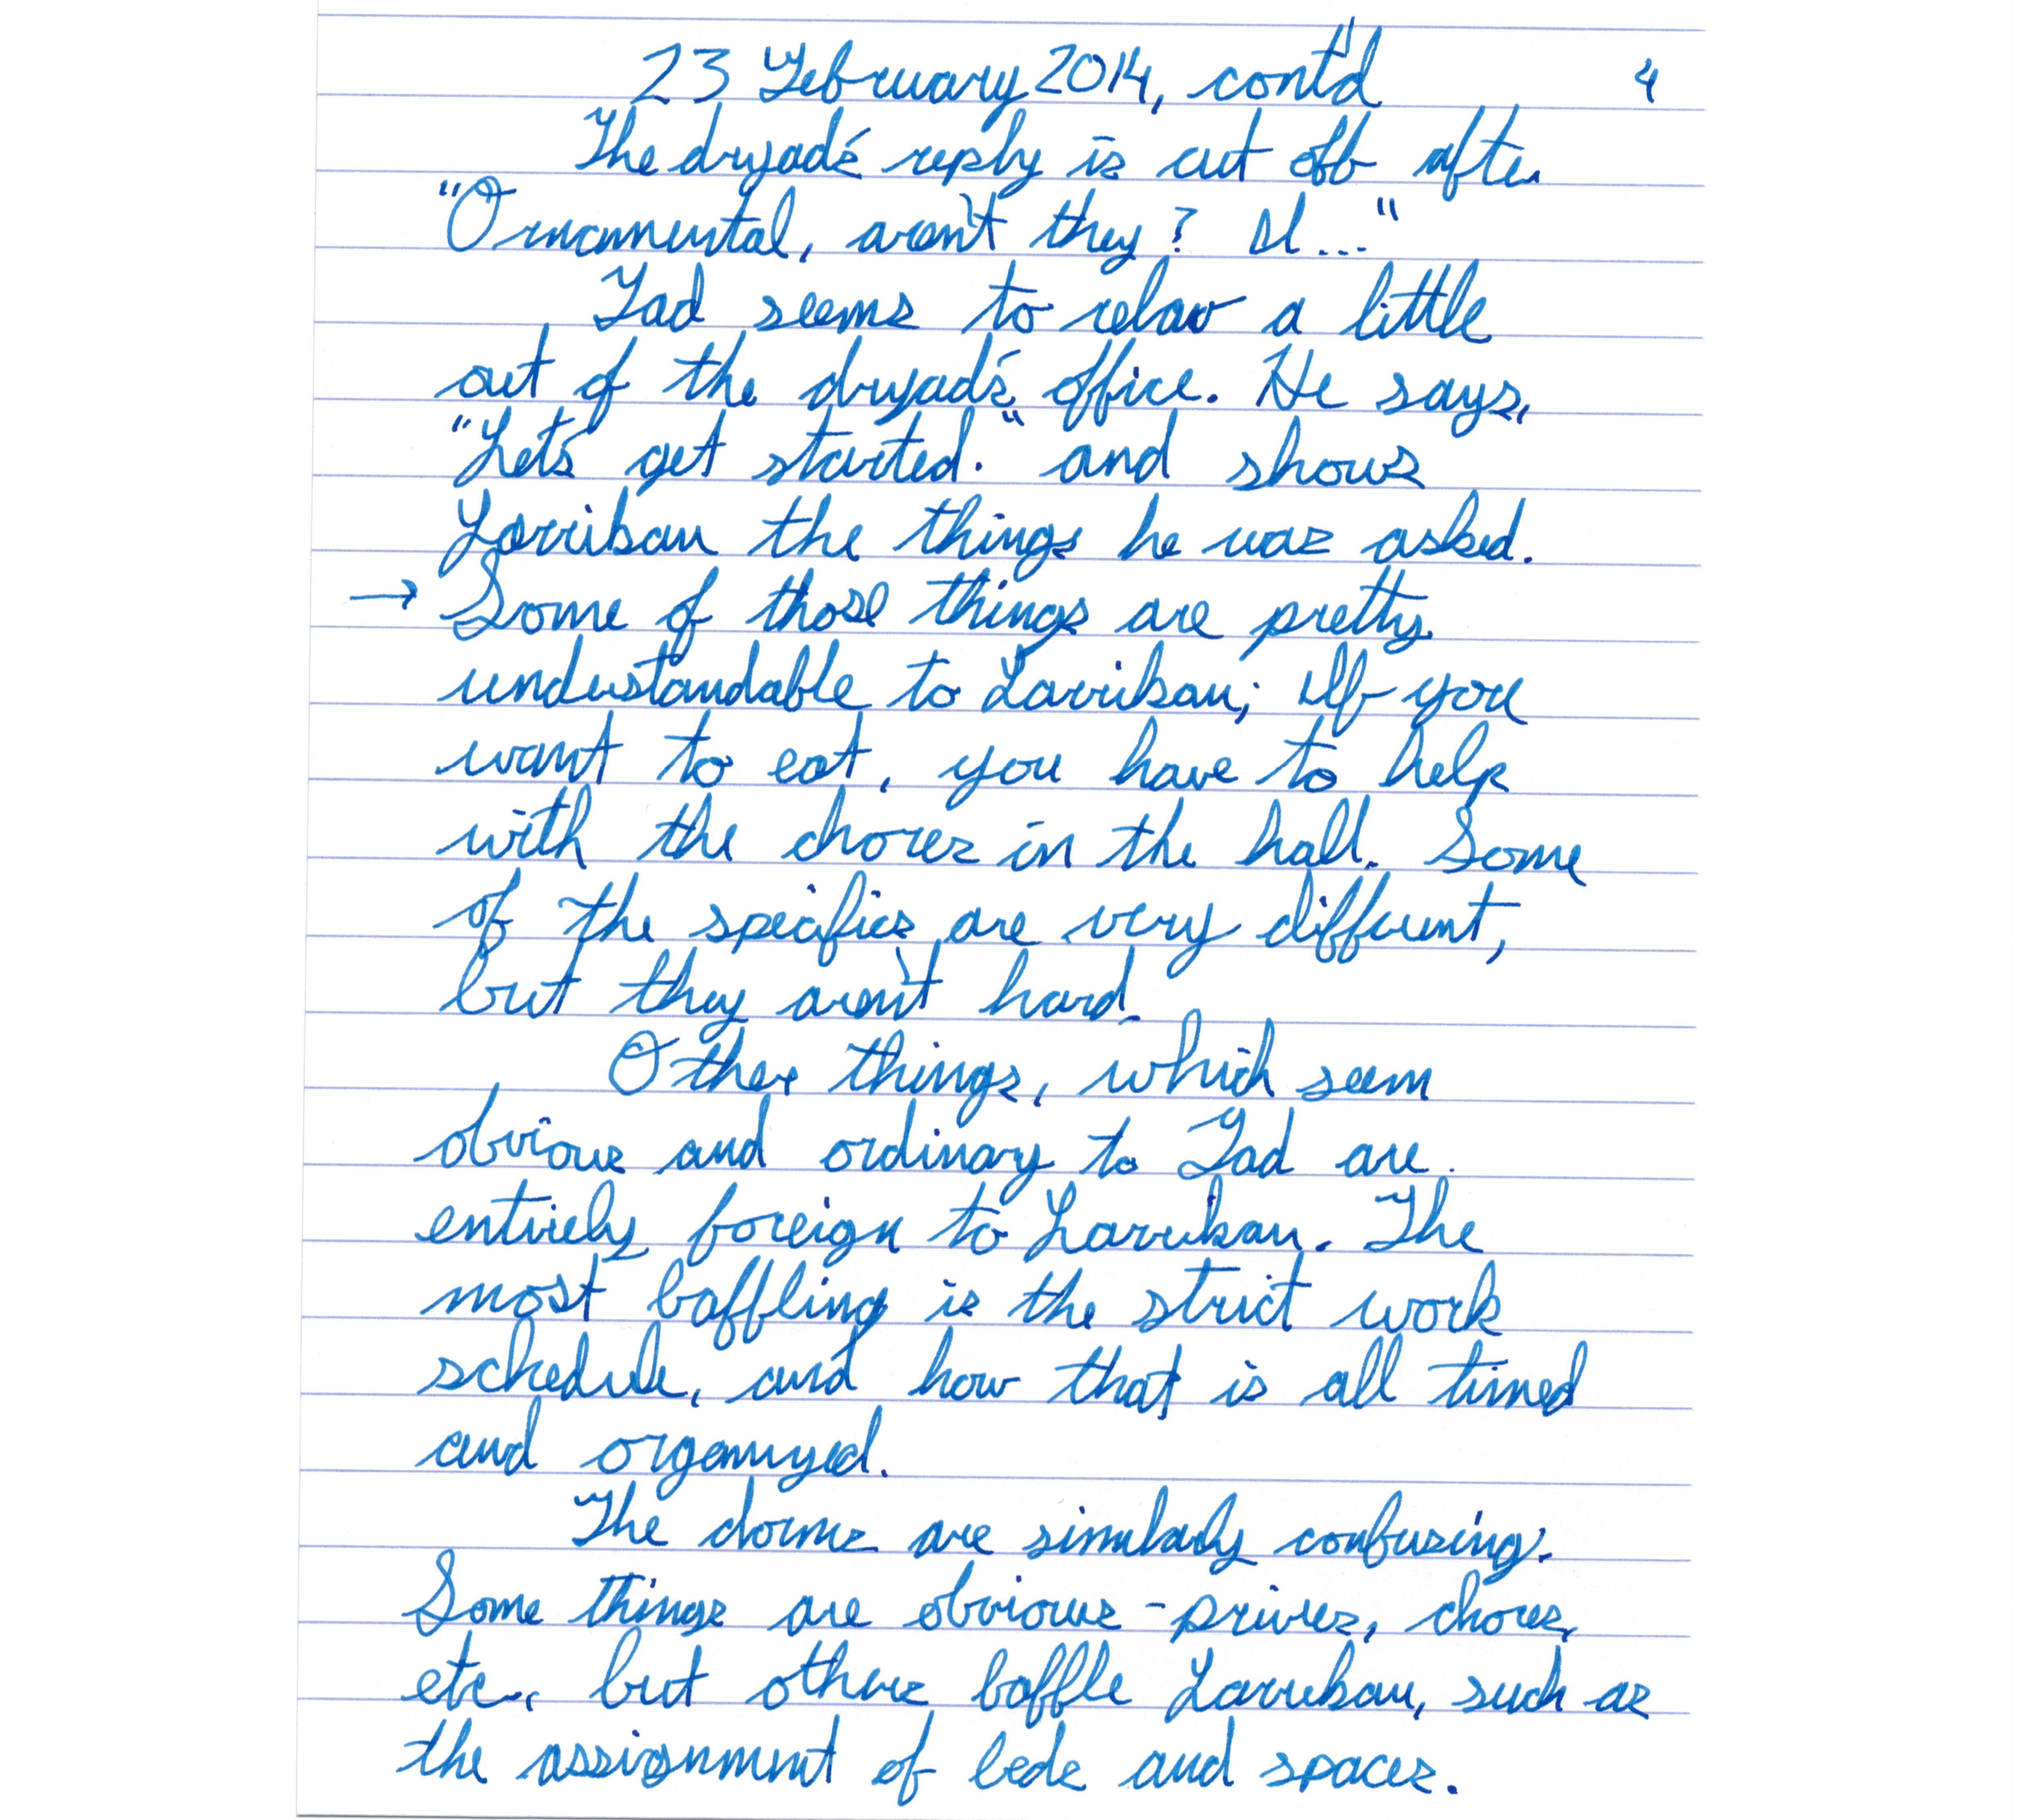 23 February 2014, cont'd 4
The dryad's reply is cut off after
"Ornamental, aren't they? I..."
Tad seems to relax a little
out of the dryad's office. He says,
"Let's get started." and shows
Larriban the things he was asked.
→ Some of those things are pretty
understandable to Larriban; If you
want to eat, you have to help
with the chores in the hall. Some
of the specifics are very different,
but they aren't hard.
Other things, which seem
obvious and ordinary to Tad are
entirely foreign to Larriban. The
most baffling is the strict work
schedule, and how that is all timed
and organized.
The dorms are similarly confusing.
Some things are obvious - privies, chores,
etc., but others baffle Larriban, such as
the assignment of beds and spaces.